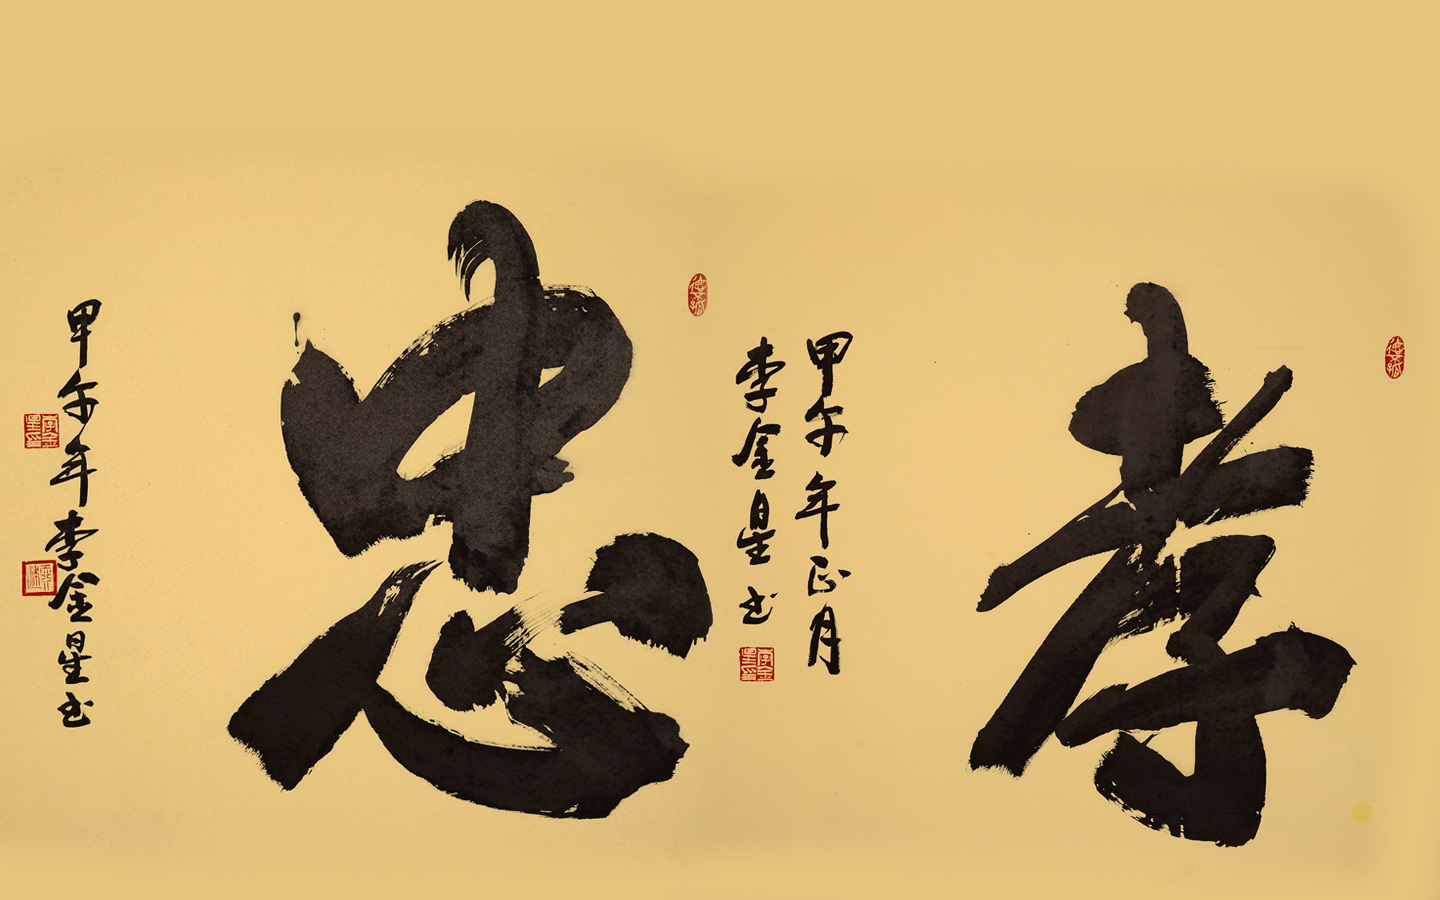 孝
甲午年正月
李金星书
忠
甲午年李金星书